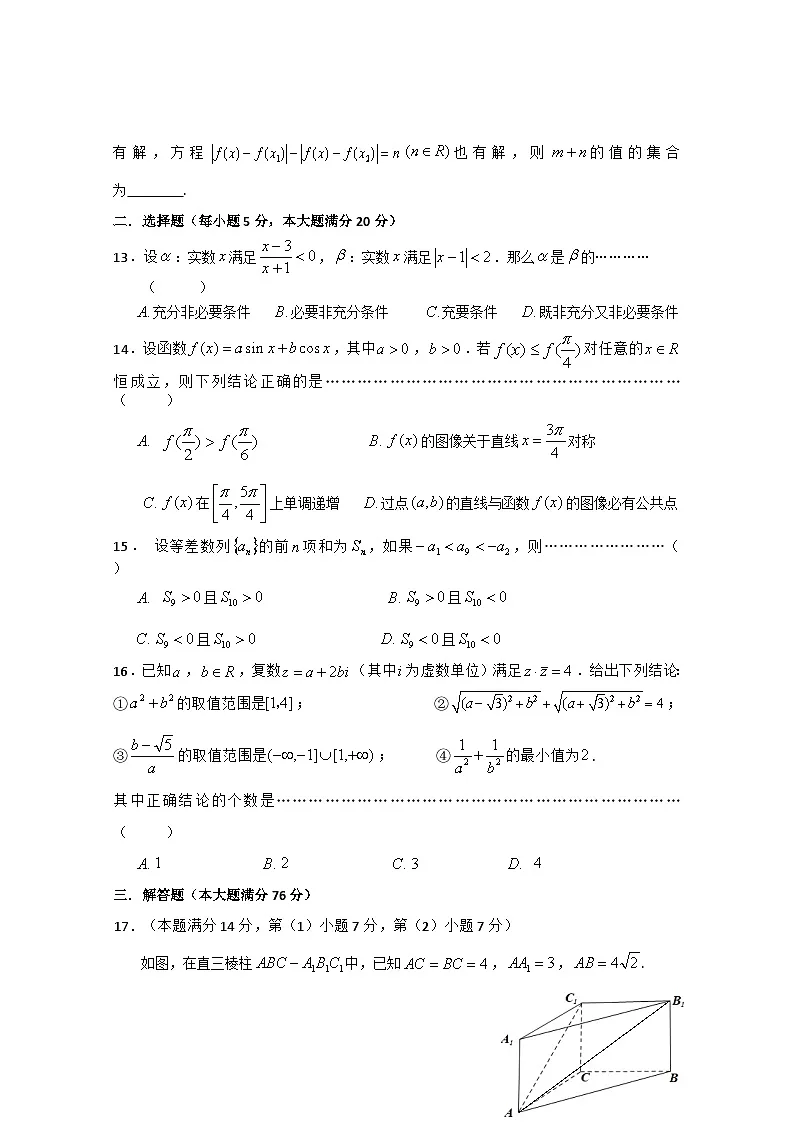 有解，方程|f(x)−f(x₁)|−|f(x)−f(x₂)|=n (n∈R)也有解，则m+n的值的集合
为________.
二. 选择题（每小题5分，本大题满分20分）
13.设α:实数x满足(x−3)/(x+1)<0，β:实数x满足|x−1|<2.那么α是β的…………
（ ）
A.充分非必要条件 B.必要非充分条件 C.充要条件 D.既非充分又非必要条件
14.设函数f(x)=a sin x+b cos x，其中a>0，b>0.若f(x)≤f(π/4)对任意的x∈R
恒成立，则下列结论正确的是…………………………………………………………
（ ）
A. f(π/2)>f(π/6) B. f(x)的图像关于直线x=3π/4对称
C. f(x)在[π/4,5π/4]上单调递增 D.过点(a,b)的直线与函数f(x)的图像必有公共点
15. 设等差数列{aₙ}的前n项和为Sₙ，如果−a₁<a₉<−a₂，则……………………（
）
A. S₉>0且S₁₀>0 B. S₉>0且S₁₀<0
C. S₉<0且S₁₀>0 D. S₉<0且S₁₀<0
16.已知a，b∈R，复数z=a+2bi（其中i为虚数单位）满足z·z̄=4.给出下列结论:
①a²+b²的取值范围是[1,4]； ②√((a−√3)²+b²)+√((a+√3)²+b²)=4；
③(b−√5)/a的取值范围是(−∞,−1]∪[1,+∞)； ④1/a²+1/b²的最小值为2.
其中正确结论的个数是…………………………………………………………………
（ ）
A. 1 B. 2 C. 3 D. 4
三. 解答题（本大题满分76分）
17.（本题满分14分，第（1）小题7分，第（2）小题7分）
如图，在直三棱柱ABC−A₁B₁C₁中，已知AC=BC=4，AA₁=3，AB=4√2.
C₁
B₁
A₁
C
B
A